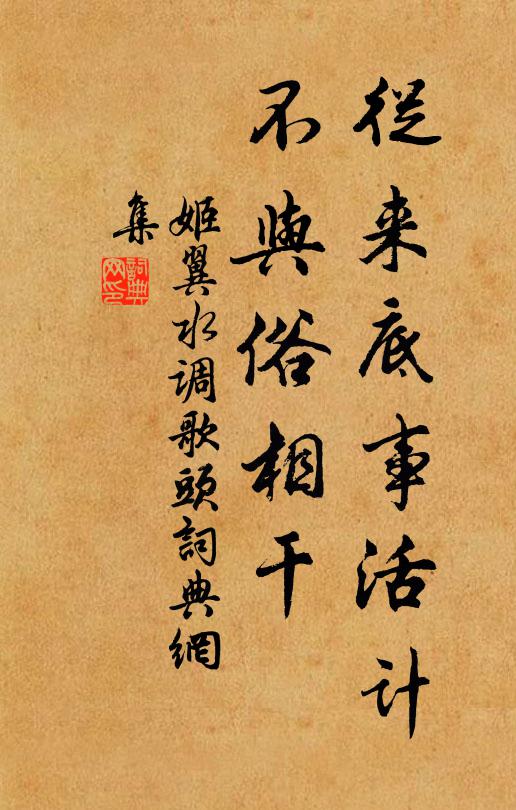 從来底事活计
不與俗相干
姬翼水调歌頭詞典網
集
詞典网印